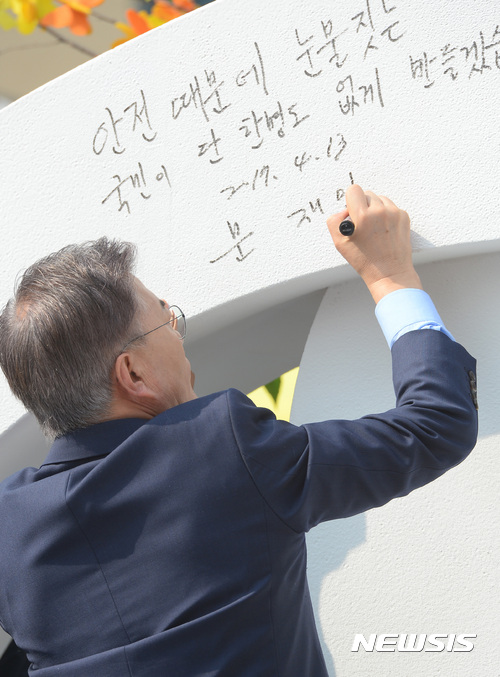 안전 때문에 눈물짓는
국민이 단 한명도 없게 만들겠습
2017. 4. 13
문 재 인
NEWSIS